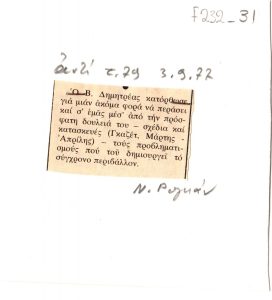 f232_31
ἀντί τ.79 3.9.77
Ὁ Β. Δημητρέας κατόρθωσε
γιά μιάν ἀκόμα φορά νά περάσει
καί σ' ἐμᾶς μέσ' ἀπό τήν πρόσ-
φατη δουλειά του – σχέδια καί
κατασκευές (Γκαζέτ. Μάρτης -
Ἀπρίλης) – τούς προβληματι-
σμούς πού τοῦ δημιουργεί τό
σύγχρονο περιβάλλον.